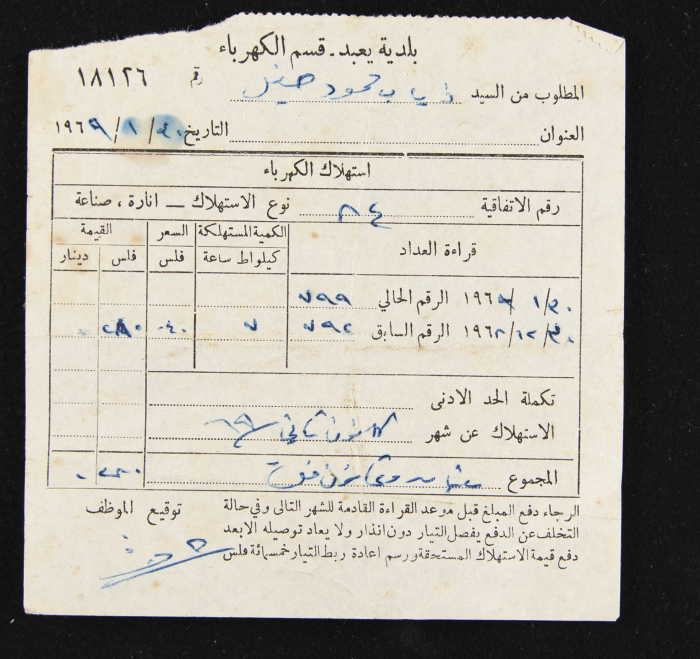 بلدية يعبد - قسم الكهرباء
رقم ١٨١٢٦
المطلوب من السيد ذياب محمود
العنوان التاريخ ٣٠/١/١٩٦٩
استهلاك الكهرباء
رقم الاتفاقية ٨٤ نوع الاستهلاك — انارة ، صناعة
قراءة العداد الكمية المستهلكة السعر القيمة
كيلواط ساعة فلس فلس دينار
٣٠/١/١٩٦٩ الرقم الحالي ٧٩٩
٣٠/١٢/١٩٦ الرقم السابق ٧٩٢ ٧ ٠٤٠ ٢٨٠
تكملة الحد الادنى
الاستهلاك عن شهر كانون ثاني ٦٩
المجموع
الرجاء دفع المبلغ قبل موعد القراءة القادمة للشهر التالي وفي حالة
التخلف عن الدفع يفصل التيار دون انذار ولا يعاد توصيله الا بعد
دفع قيمة الاستهلاك المستحقة ورسم اعادة ربط التيار خمسمائة فلس
توقيع الموظف